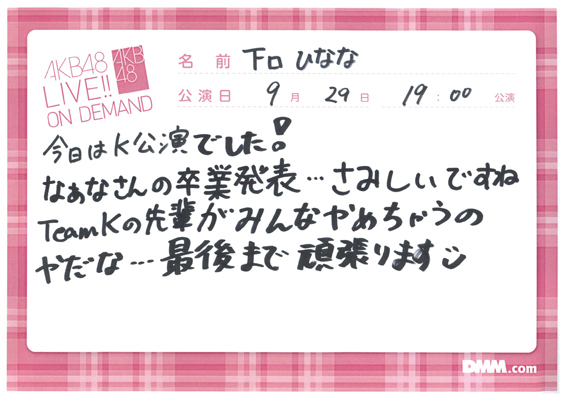 AKB48
LIVE!!
ON DEMAND
AKB
48
名前 下口ひなな
公演日 9月29日 19:00 公演
今日はK公演でした!
なぁなさんの卒業発表…さみしいですね
TeamKの先輩がみんなやめちゃうの
やだな…最後まで頑張ります
DMM.com